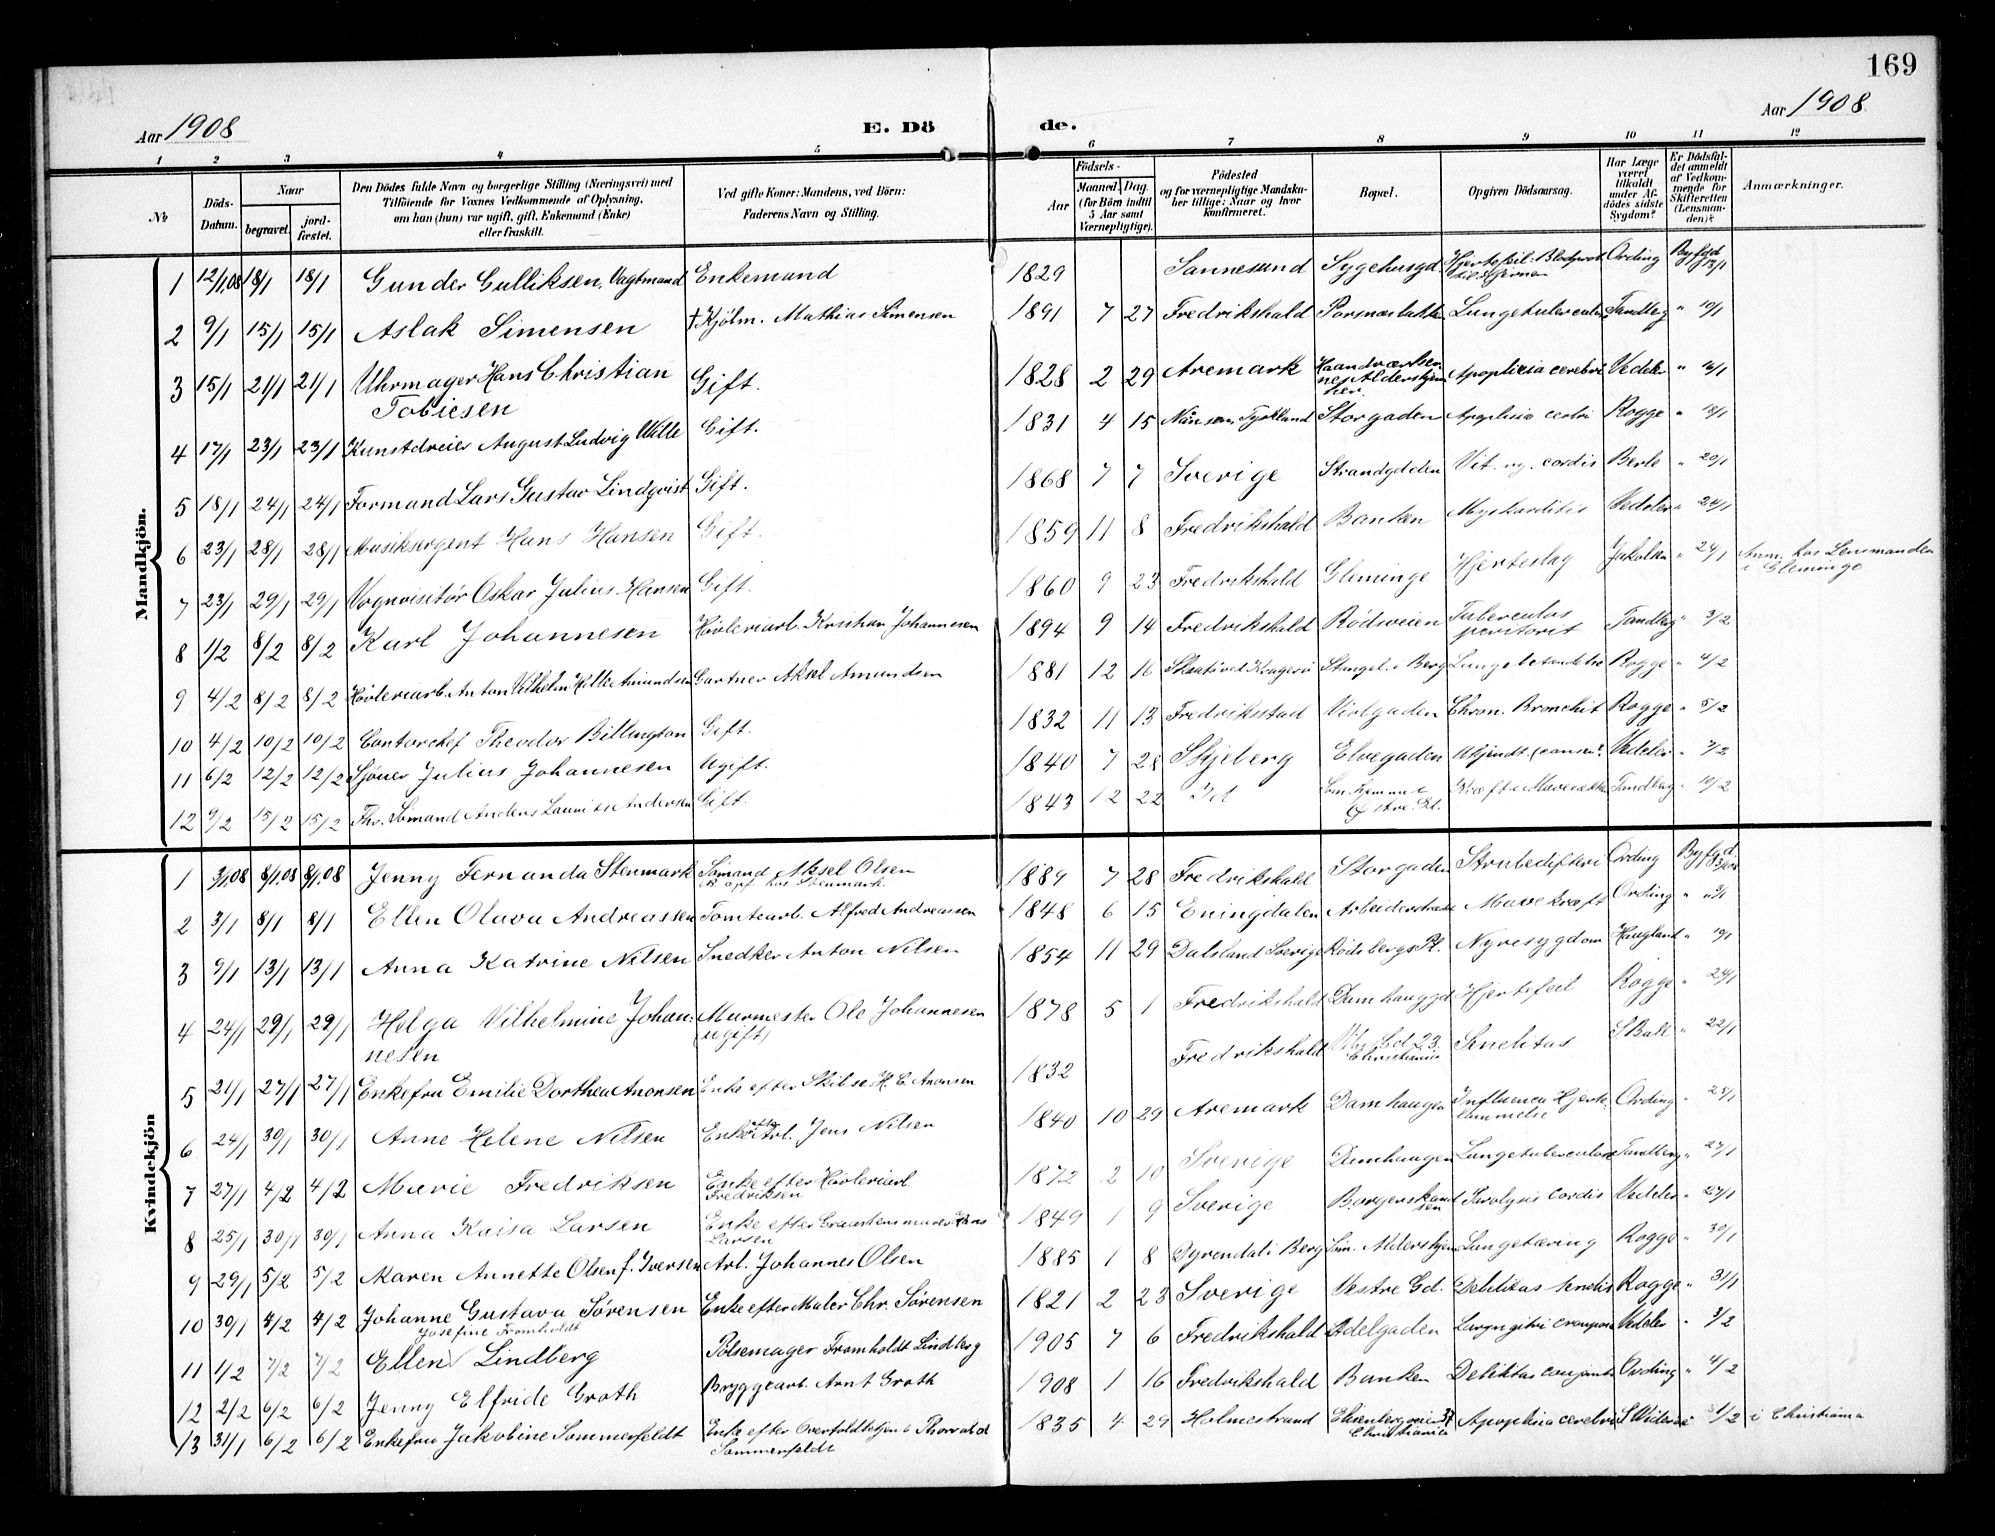 169
Aar 1908
E. Døde.
Aar 1908
1 2 3 4 5 6 7 8 9 10 11 12
No
Döds-Datum.
Naar
begravet.
jordfæstet.
Den Dödes fulde Navn og borgerlige Stilling (Næringsvei) med
Tilföiende for Voxnes Vedkommende af Oplysning,
om han (hun) var ugift, gift, Enkemand (Enke)
eller fraskilt.
Ved gifte Koner: Mandens, ved Börn:
Faderens Navn og Stilling.
Födsels-
Aar
Maaned Dag.
(for Börn indtil
5 Aar samt
Værnepligtige).
Födested
og for værnepligtige Mandska-
ber tillige: Naar og hvor
konfirmeret.
Bopæl.
Opgiven Dödsaarsag.
Har Læge
været
tilkaldt
under Af-
dödes sidste
Sygdom?
Er Dödsfal-
det anmeldt
af Vedkom-
mende for
Skifteretten
(Lensman-
den)?
Anmærkninger.
Mandkjön.
1 12/1 08 18/1 18/1 Gunder Gulliksen, Vagtmand Enkemand 1829 Sannesund Sygehusgd Hjertefeil. Ording Byfgd 13/1
2 9/1 15/1 15/1 Aslak Simensen † Kjølm. Mathias Simensen 1891 7 27 Fredrikshald Lungetuberculose Tandberg " 10/1
3 15/1 21/1 21/1 Uhrmager Hans Christian Gift. 1828 2 29 Aremark Haandværker- Apoplexia cerebri Vedeler " 16/1
Tobiesen
4 17/1 23/1 23/1 Kunstdreier August Ludvig Wille Gift. 1831 4 15 Tyskland Storgaden Apoplexia cerebri Rogge " 18/1
5 18/1 24/1 24/1 Formand Lars Gustav Lindqvist Gift. 1868 7 7 Sverige Strandgaden Vit. cordis Berle " 20/1
6 23/1 28/1 28/1 Musiksergent Hans Hansen Gift. 1859 11 8 Fredrikshald Banken Myokarditis Vedeler " 24/1
7 23/1 29/1 29/1 Vognvisitør Oskar Julius Hansen Gift. 1860 9 23 Fredrikshald Gleminge Hjerteslag " 24/1 Anm. hos Lensmanden
i Gleminge
8 1/2 8/2 8/2 Karl Johannesen Høvleriarb. Kristian Johannesen 1894 9 14 Fredrikshald Rødsveien Tuberculos Tandberg " 3/2
peritonit
9 4/2 8/2 8/2 Høvleriarb. Anton Vilhelm Amundsen Gartner Aksel Amundsen 1881 12 16 Skaatø ved Kragerø i Berg Lungebetændelse Rogge " 4/2
10 4/2 10/2 10/2 Contorchef Theodor Billington Gift. 1832 11 13 Fredriksstad Violgaden Chron. Bronchit Rogge " 5/2
11 6/2 12/2 12/2 Sjöner Julius Johannesen Ugift. 1840 7 28 Skjeberg Elvegaden Vedeler " 7/2
12 9/2 15/2 15/2 Fhv. Sømand Anders Lauritz Andersen Gift. 1843 12 22 Id Kræft i Mavesækken Tandberg " 10/2
Kvindekjön
1 3/1 08 8/1 08 8/1 08 Jenny Fernanda Stenmark Sömand Aksel Olsen 1889 7 28 Fredrikshald Storgaden Strubedifteri Ording Byfgd.
B. opf. hos Stenmark.
2 3/1 8/1 8/1 Ellen Olava Andreassen Tomtearb. Alfred Andreassen 1848 6 15 Eningdalen Arbeiderstræde Mavekræft Ording "
3 9/1 13/1 13/1 Anna Katrine Nilsen Snedker Anton Nilsen 1854 11 29 Dalsland Sverige Rødsbergs Pl. Nyresygdom Haugland " 10/1
4 24/1 29/1 29/1 Helga Vilhelmine Johan- Murmester Ole Johannesen 1878 5 1 Fredrikshald Damhauggd Hjertefeil Rogge " 24/1
nesen (ugift)
5 21/1 27/1 27/1 Enkefru Emilie Dorthea Anonsen Enke efter Skibsr. H. C. Anonsen 1832 Fredrikshald Christiania Senilitas S. Ball " 22/1
6 24/1 30/1 30/1 Anne Helene Nilsen Enke efter Arb. Jens Nilsen 1840 10 29 Aremark Damhaugen Influenca Hjerte- Ording " 25/1
lammelse
7 27/1 4/2 4/2 Marie Fredriksen Enke efter Høvleriarb 1872 2 10 Sverige Damhaugen Lungetuberculose Tandberg " 27/1
Fredriksen
8 25/1 30/1 30/1 Anna Kaisa Larsen Enke efter Graastensmurer Hans 1849 1 9 Sverige Borgerskand- Paralysis cordis Vedeler " 27/1
Larsen
9 29/1 5/2 5/2 Maren Annette Olsen f. Iversen Arb. Johannes Olsen 1885 1 8 Dyrendal i Berg Lungetæring Rogge " 30/1
10 30/1 4/2 4/2 Johanne Gustava Sørensen Enke efter Maler Chr. Sørensen 1821 2 23 Sverige Vestre Gd. Debilitas senilis Rogge " 31/1
Josefine Fromholdt
11 1/2 7/2 7/2 Ellen Lindberg Pölsemager Fromholdt Lindberg 1905 7 6 Fredrikshald Adelgaden Laryngitis crouposa Vedeler " 3/2
12 2/2 6/2 6/2 Jenny Elfride Groth Bryggearb. Arnt Groth 1908 1 16 Fredrikshald Banken Debilitas congenita Ording " 4/2
13 31/1 6/2 6/2 Enkefru Jakobine Sommerfeldt Enke efter Overtoldbetjent Thorvald 1835 4 29 Holmestrand Eilenbergveien 37 Apoplexia cerebri 3/2 i Christiania
Sommerfeldt Christiania